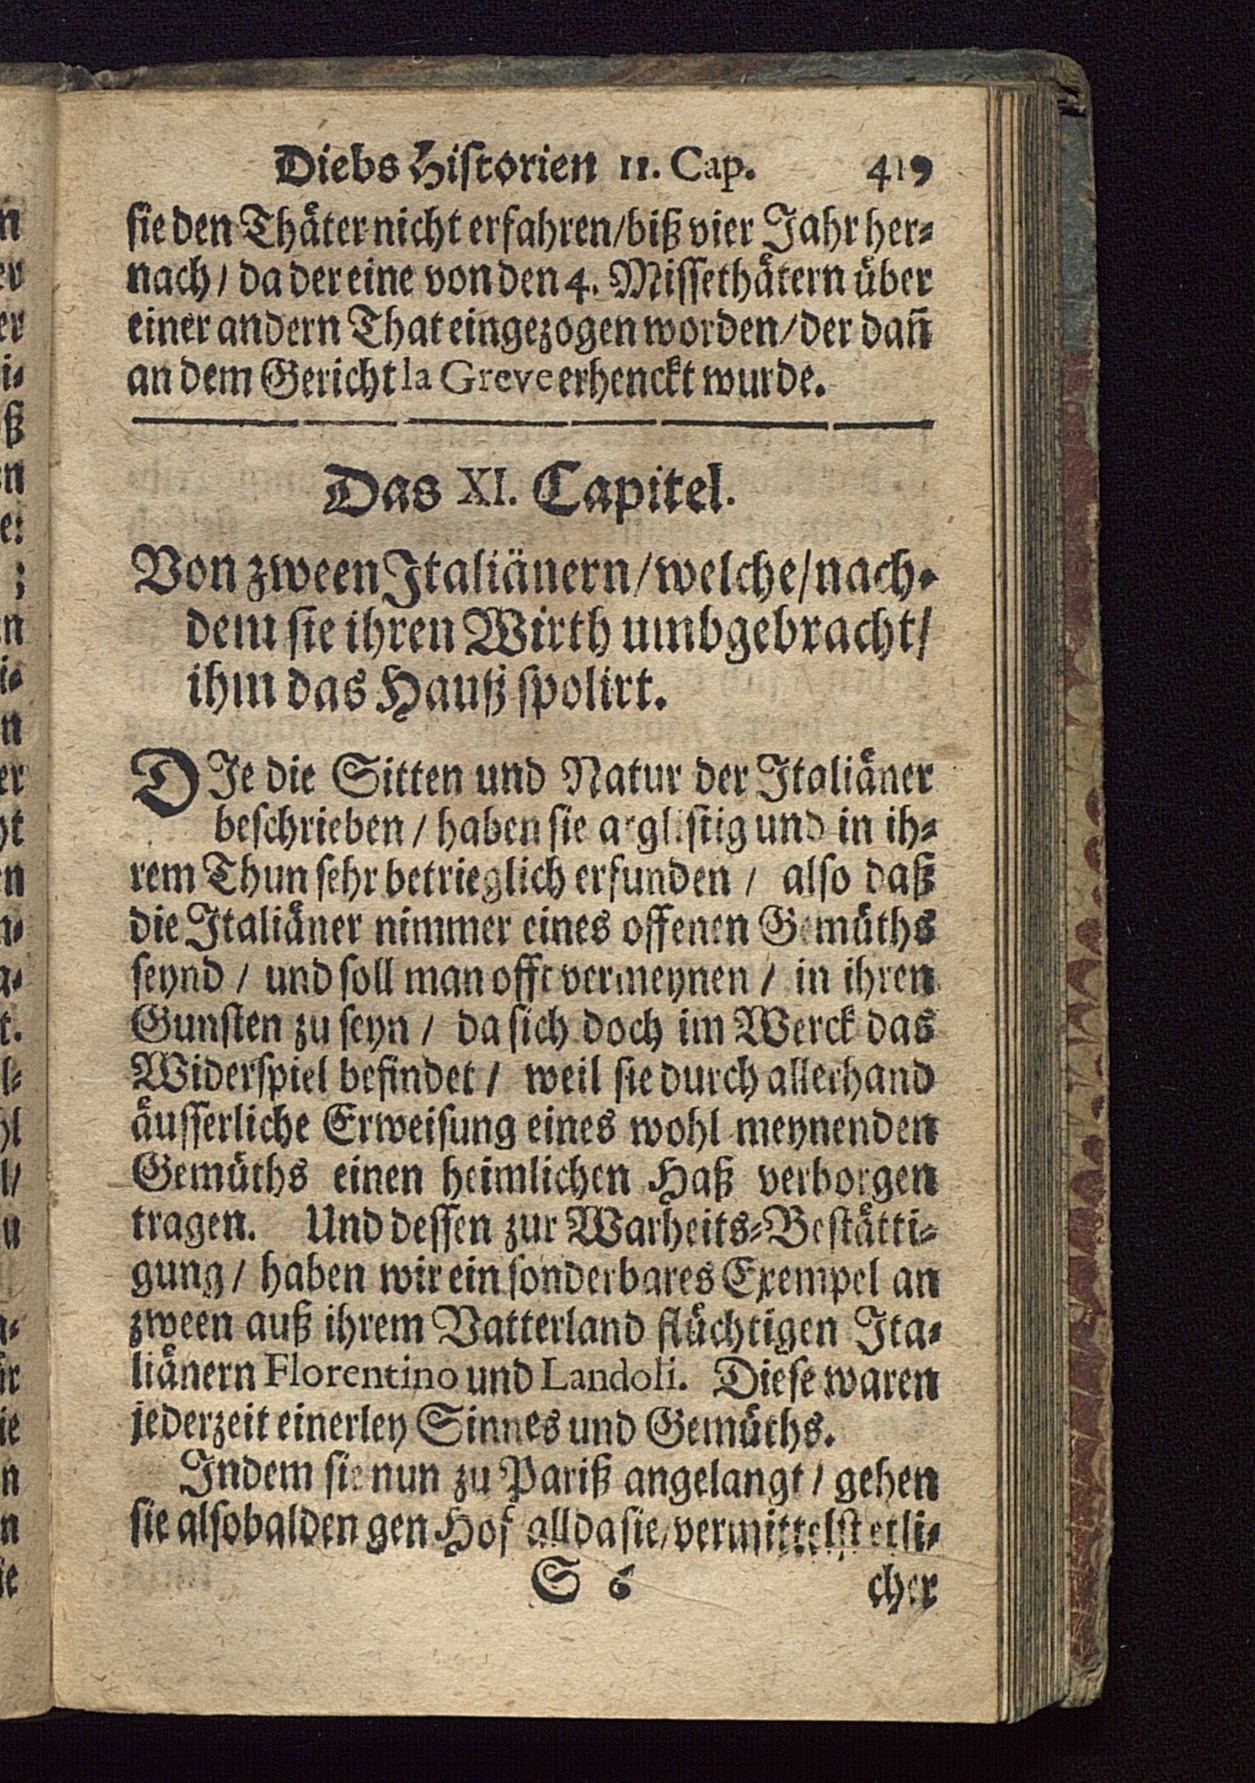 Diebs Historien 11. Cap. 419
sie den Thäter nicht erfahren/biß vier Jahr her-
nach/ da der eine von den 4. Missethätern über
einer andern That eingezogen worden/der dañ
an dem Gericht la Greve erhenckt wurde.
Das XI. Capitel.
Von zween Italiänern/welche/nach-
dem sie ihren Wirth umbgebracht/
ihm das Hauß spolirt.
DIe die Sitten und Natur der Italiäner
beschrieben/ haben sie arglistig und in ih-
rem Thun sehr betrieglich erfunden/ also daß
die Italiäner nimmer eines offenen Gemüths
seynd/ und soll man offt vermeynen/ in ihren
Gunsten zu seyn/ da sich doch im Werck das
Widerspiel befindet/ weil sie durch allerhand
äusserliche Erweisung eines wohl meynenden
Gemüths einen heimlichen Haß verborgen
tragen. Und dessen zur Warheits-Bestätti-
gung/ haben wir ein sonderbares Exempel an
zween auß ihrem Vatterland flüchtigen Ita-
liänern Florentino und Landoli. Diese waren
jederzeit einerley Sinnes und Gemüths.
Indem sie nun zu Pariß angelangt/ gehen
sie alsobalden gen Hof allda sie/vermittelst etli-
S 6 cher